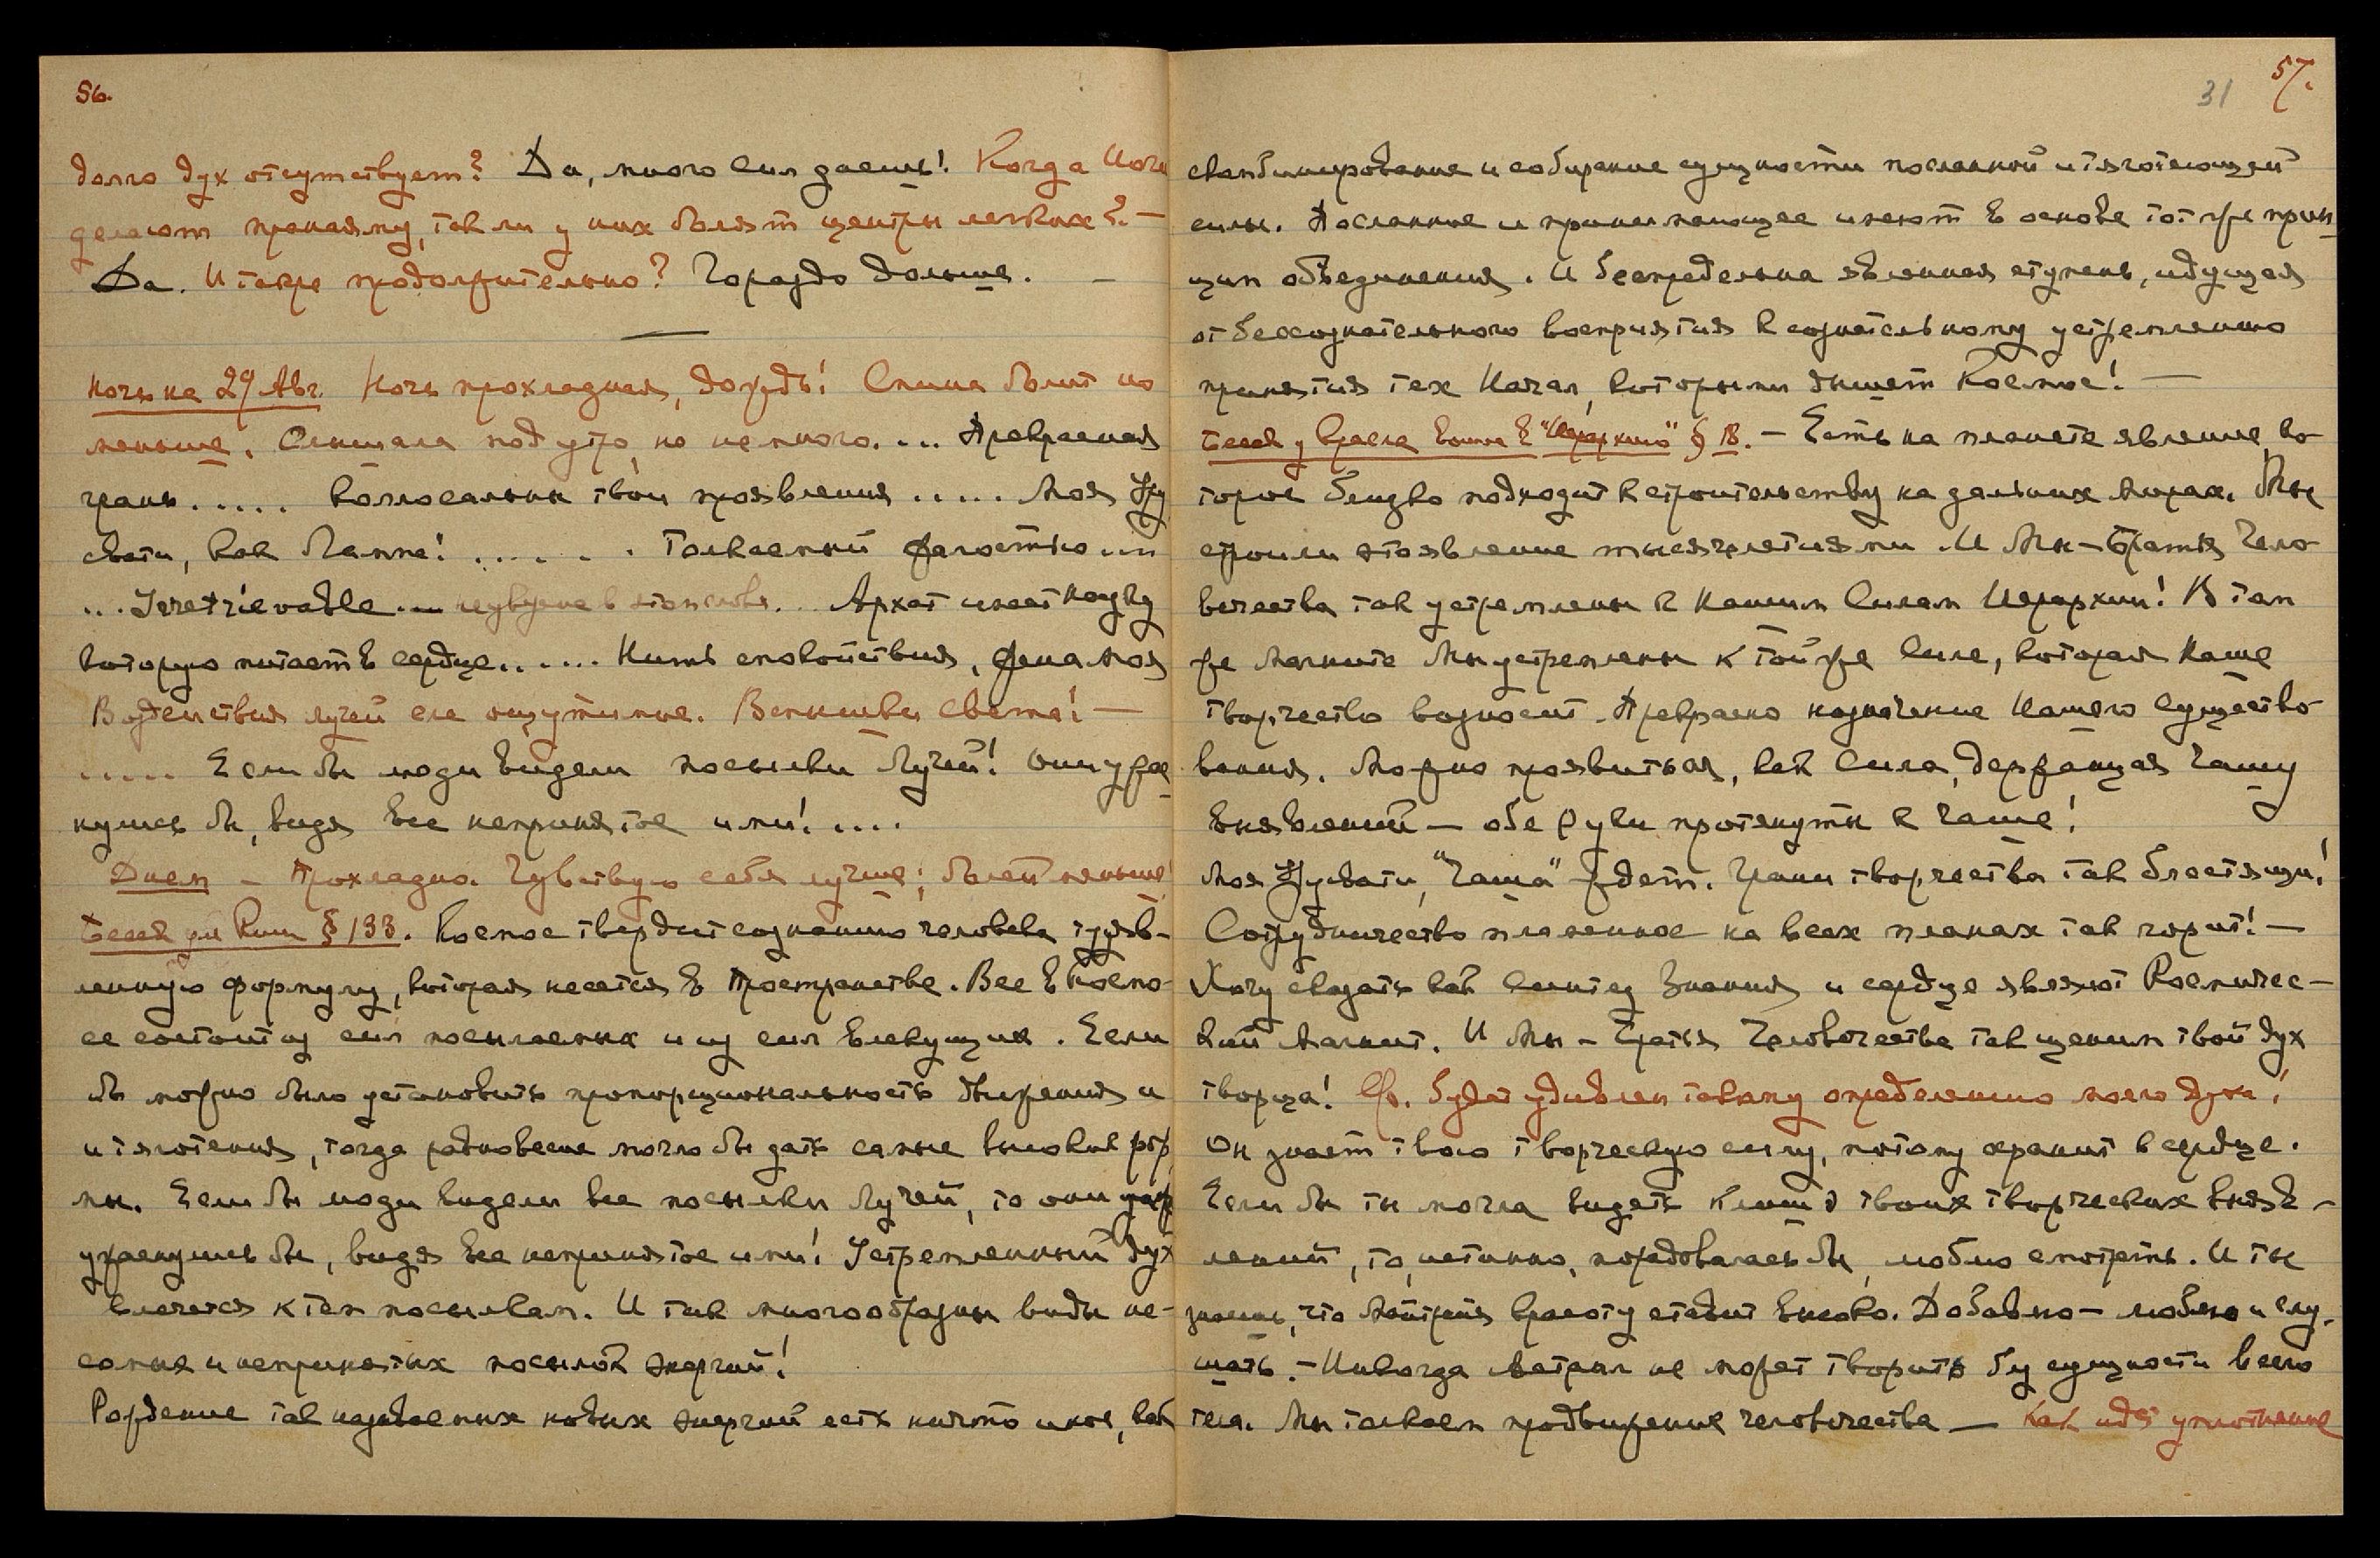 56.
долго дух отсутствует? Да, много сил даешь! Когда Йоги
делают пранаяму, так ли у них болят центры легких? —
Да. И также продолжительно? Гораздо дольше. —
Ночь на 29 Авг. Ночь прохладная, дождь! Спина болит но
меньше. Слышала под утро, но немного. ... Прекрасная
грань ..... Колоссальны твои проявления ..... Моя Ур
свати, как Лампа! ....... Толкаемый жалостью ...
... Irretrievable ... неуверена в этом слове... Архат имеет
которую питает в сердце...... Нить спокойствия, жена моя
Воздействия лучей еле ощутимые. Вспышки света! —
..... Если бы люди видели посылки Лучей! Они ужас
нулись бы, видя все непринятое ими! ....
Днем — Прохладно. Чувствую себя лучше; болей меньше!
Бесед. для Книги § 133. Космос твердит сознанию человека
ленную формулу, которая несется в Пространстве. Все в Космо-
се состоит из сил посылаемых и из сил влекущих. Если
бы можно было установить пропорциональность движения и
и тяготения, тогда равновесие могло бы дать самые высокие фор
мы. Если бы люди видели все посылки Лучей, то они
ужаснулись бы, видя все непринятое ими! Устремленный дух
влечется к тем посылкам. И так многообразны виды не-
сомых и непринятых посылок энергий!
Рождение так называемых новых энергий есть ничто иное, как
31 57.
скомбинирование и собирание сущности посланной и тяготеющей
силы. Посланное и принимающее имеют в основе тот же прин
цип объединения. И беспредельна явленная ступень, идущая
от бессознательного восприятия к сознательному устремлению
принятия тех Начал, которыми дышет Космос! —
Бесед. у Кресла вошла в "Иерархию" § 18. — Есть на планете явление, ко-
торое близко подходит к строительству на дальних мирах. Мы
строили это явление тысячелетиями. И Мы — Братья Чело-
вечества так устремлены к Нашим Силам Иерархии! В том
же Магните Мы устремлены к той же Силе, которая Наше
творчество возносит. Прекрасно назначение Нашего Существо-
вания. Можно проявиться, как Сила, держащая Чашу
выявлений — обе руки протянуты к Чаше!
Моя Урусвати, "Чаша" ждет. Грани творчества так блестящи!
Сотрудничество пламенное на всех планах так горит! —
Хочу сказать как Синтез Знания и сердце являют Космичес-
кий Магнит. И Мы — Братья Человечества так ценим твой дух
творца! Ф. будет удивлен такому определению моего духа!
Он знает твою творческую силу, потому хранит в сердце.
Если бы ты могла видеть клише твоих творческих выяв-
лений, то, истинно, порадовалась бы, люблю смотреть. И ты
знаешь, что Майтрейя красоту ставит высоко. Добавлю — люблю и слу-
шать. — Никогда Астрал не может творить без сущности всего
тела. Мы толкаем продвижение человечества — Как идет уплотнение